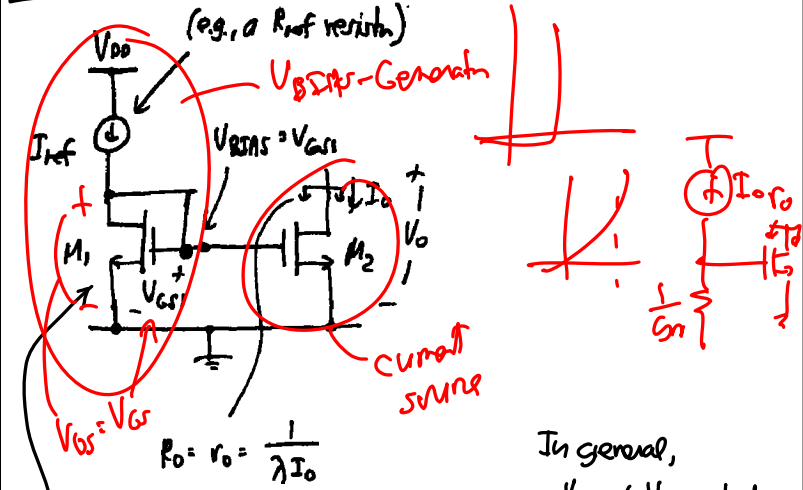 (e.g., a Rref resistor)
VDD
VBIAS-Generator
Iref
VBIAS = VGS1
+
Io
+
Vo
-
M1
+
VGS1
-
M2
-
Io ro
1/Gm
current source
VDS = VGS
Ro = ro = 1/λIo
In general,